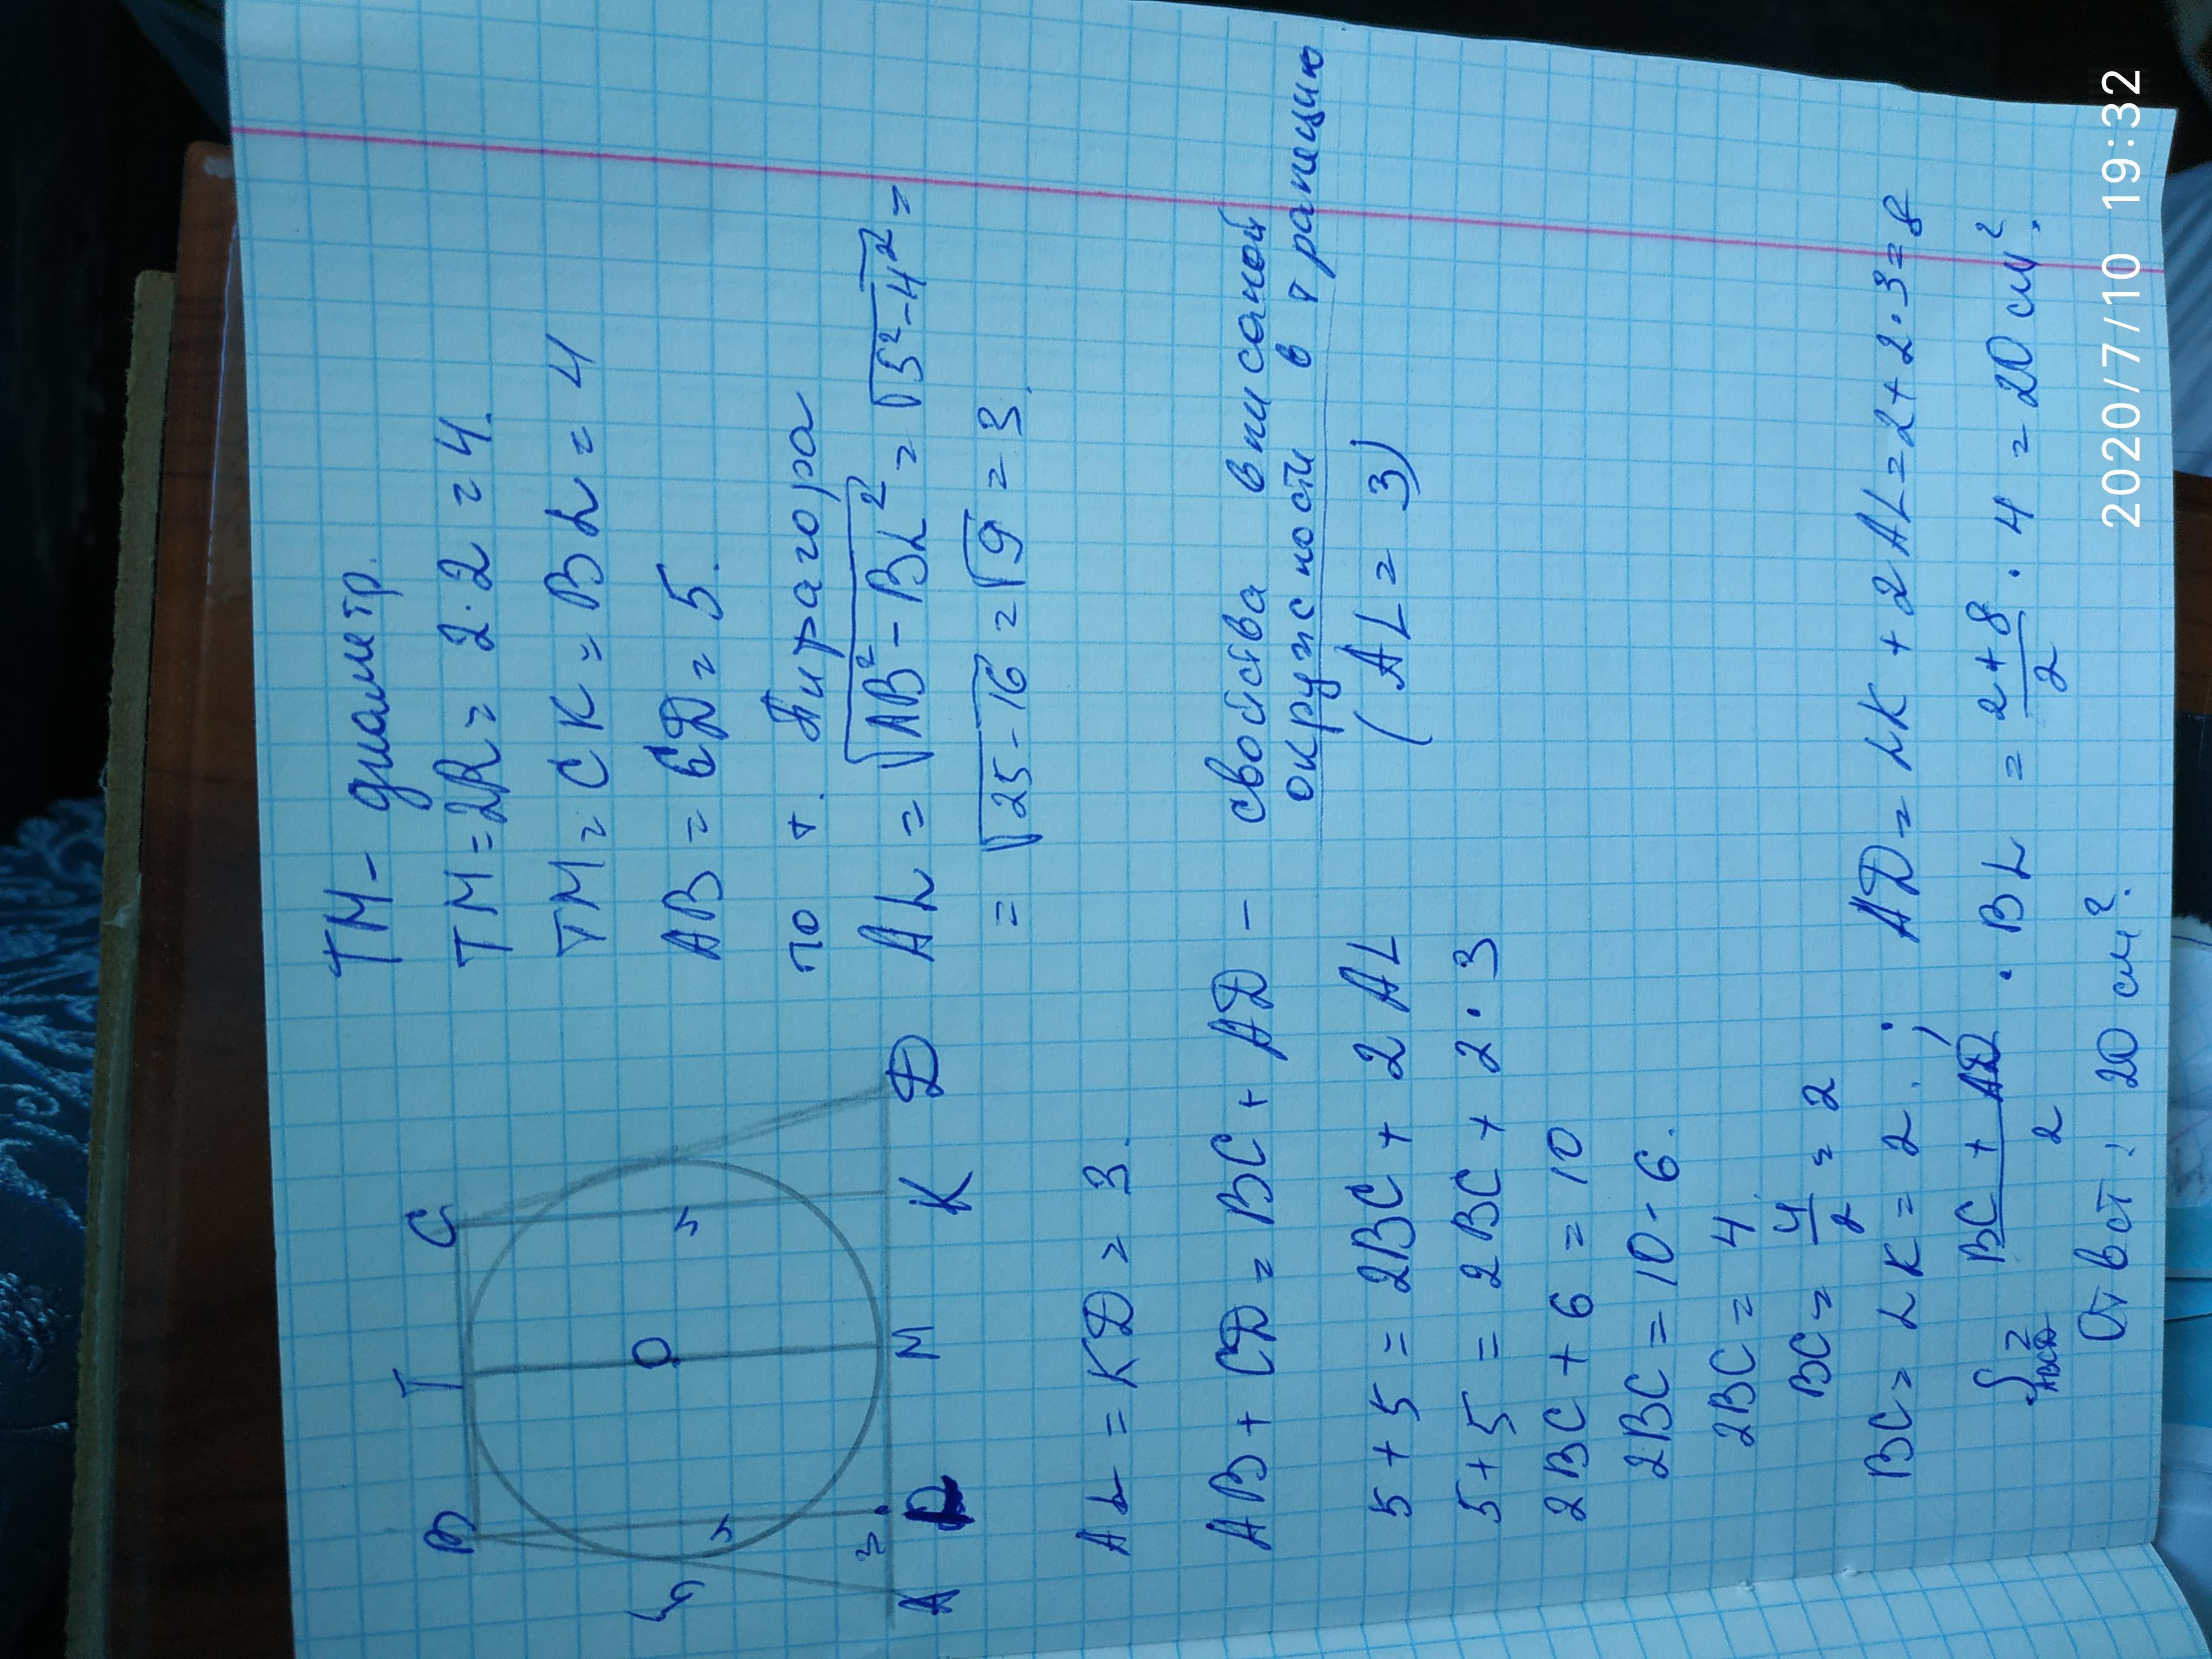 B T C
O
5
3
A L M K D
TM - диаметр.
TM = 2R = 2·2 = 4.
TM = CK = BL = 4
AB = CD = 5.
по т. Пифагора
AL = √AB² - BL² = √5² - 4² =
= √25 - 16 = √9 = 3.
AL = KD = 3.
AB + CD = BC + AD - свойства вписаной
окружности в трапецию
5 + 5 = 2BC + 2AL (AL = 3)
5 + 5 = 2BC + 2·3
2BC + 6 = 10
2BC = 10 - 6.
2BC = 4
BC = 4/2 = 2
BC = LK = 2. ; AD = LK + 2AL = 2 + 2·3 = 8
S ABCD = BC + AD/2 · BL = 2+8/2 · 4 = 20 см².
Ответ: 20 см².
2020/7/10 19:32